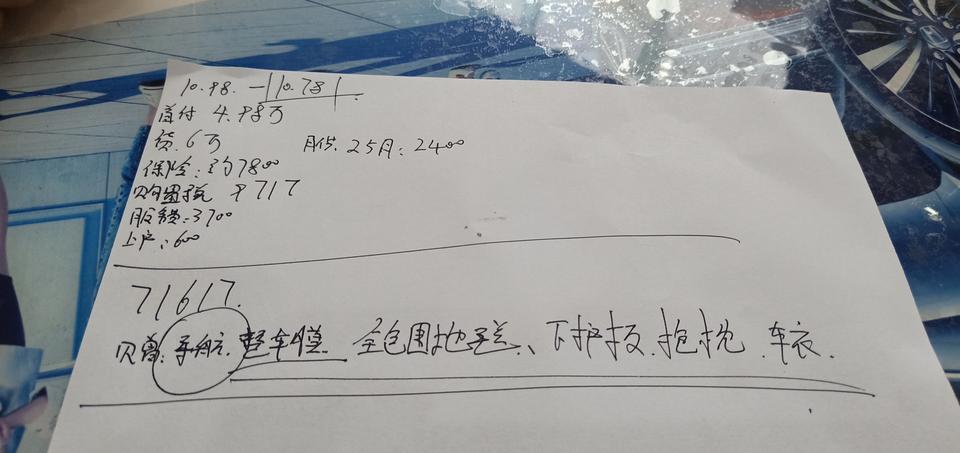 10.98. —|10.78|.
首付 4.98万
贷.6万 月供.25月:2400
保险:约7800
购置税 9717
服务费:3700
上户:600
71617.
贝曽:导航.整车膜 全包围地毯、下护板.抱枕.车衣.